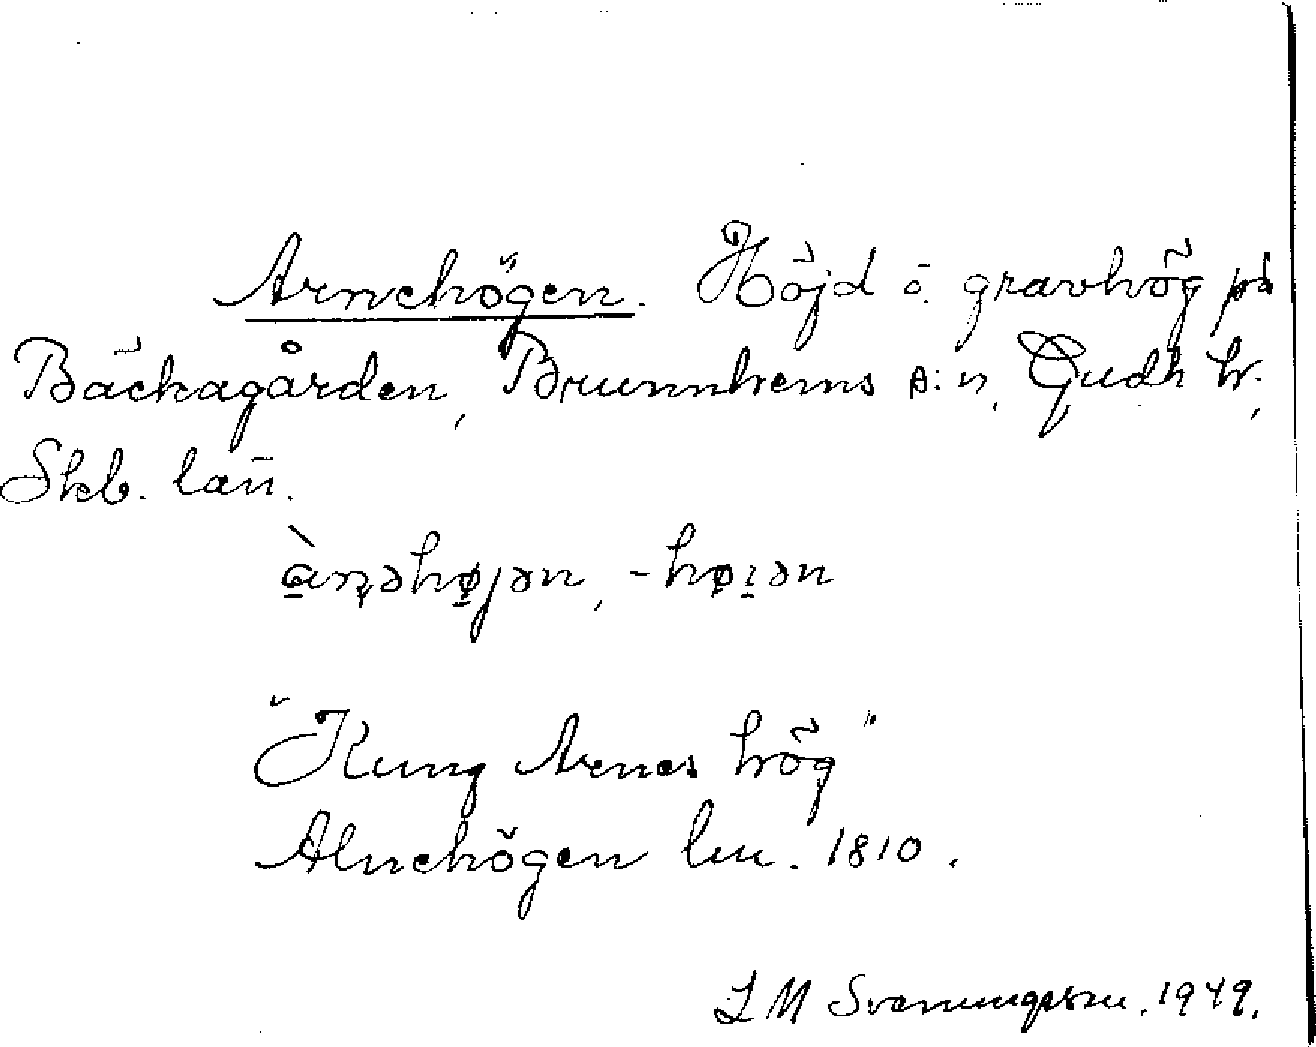 Arnehögen. Höjd o. gravhög på
Bäckagården, Brunnhems s:n, Gudh h.,
Skb. län.
àn̥əhøjən, -høıən
"Kung Arnes hög"
Alnehögen lm. 1810.
L M Svenungsson. 1949.